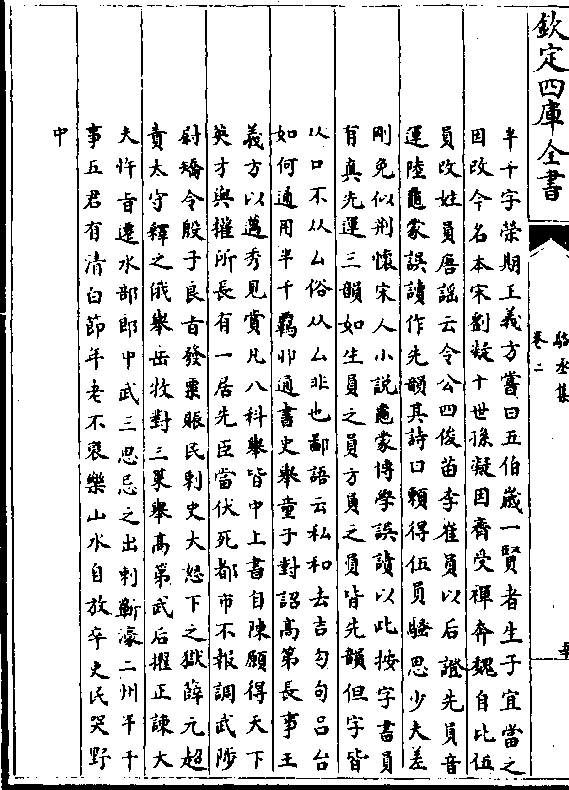 欽定四庫全書
卷二
半千字榮期王義方嘗曰五伯嵗一賢者生子宜當之
因改今名本宋劉凝十世孫凝因齊受禪奔魏自比伍
員改姓員唐謡云令公四俊苗李崔員以后證先員音
運陸龜蒙誤讀作先韻其詩曰賴得伍員騷思少夫差
剛免似荆懐宋人小説龜蒙博學誤讀以此按字書員
有真先運三韻如生員之員方員之員皆先韻但字皆
以口不从厶俗从厶非也鄙語云私和去吉勾句吕台
如何通用半千羈丱通書史舉童子對詔髙第長事王
義方以邁秀見賞凡八科舉皆中上書自陳願得天下
英才與㩁所長有一居先臣當伏死都市不報調武陟
尉矯令殷子良㫖發粟賑民刺史大怒下之獄薛元超
責太守釋之俄舉岳牧對三策舉髙第武后擢正諫大
夫忤㫖遷水部郎中武三思忌之出刺蘄濠二州半千
事五君有清白節年老不衰樂山水自放卒吏民哭野
中